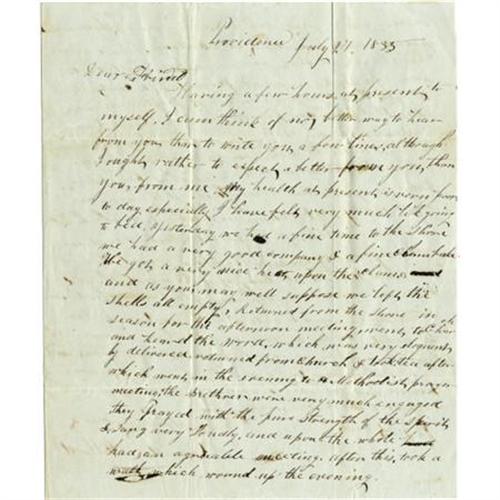 Providence July 27. 1835
Dear Friend
Having a few hours at present to
myself, I can think of no better way to hear
from you than to write you a few lines, although
I ought rather to expect a letter from you, than
you from me. My health at present is very poor
to day especially I have felt very much like going
to bed, yesterday we had a fine time to the Shore
we had a very good company & a fine Clambake
We got a very nice heat upon the Clams
and as you may well suppose we left the
shells all empty, returned from the shore in
season for the afternoon meeting, went to Church
and heard the word, which was very eloquent
ly delivered returned from Church & took tea after
which went in the evening to a Methodist prayer
meeting, the Brethren were very much engaged
they prayed with the pure strength of the Spirit
& Sang very loudly, and upon the whole
had an agreeable meeting. after this, took a
walk, which wound up the evening.